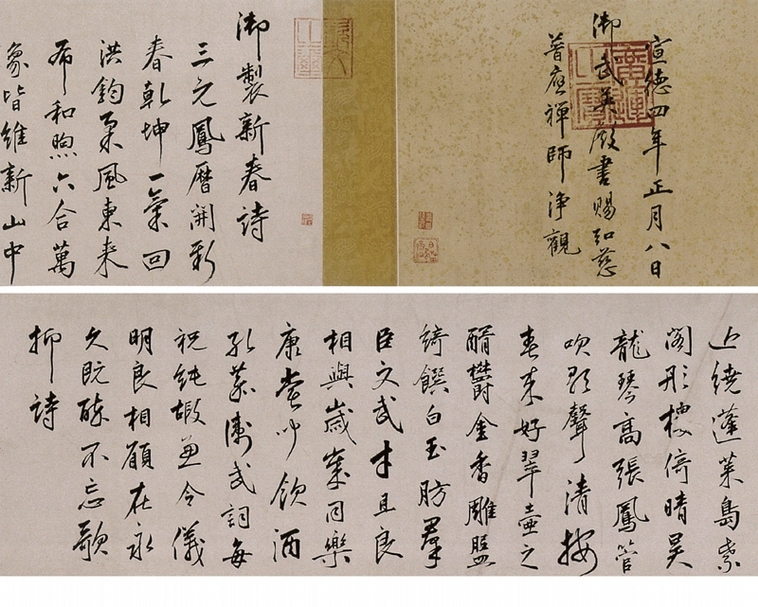 宣德四年正月八日
御武英殿書賜知慈
普應禪師淨觀
廣運之寶
御製新春詩
三元鳳曆開新
春乾坤一氣回
洪鈞柔風東來
布和煦六合萬
象皆維新山中
上繞蓬萊島紫
閣彤樓倚晴昊
龍琴高張鳳管
吹聲清按
春來好翠壺之
醑欝金香雕盤
綺饌白玉肪羣
臣文武才且良
相與歲同樂
康嘗吟飲酒
孔衛武詞每
祝純嘏並令儀
明良相顧在永
久既醉不忘歌
抑詩